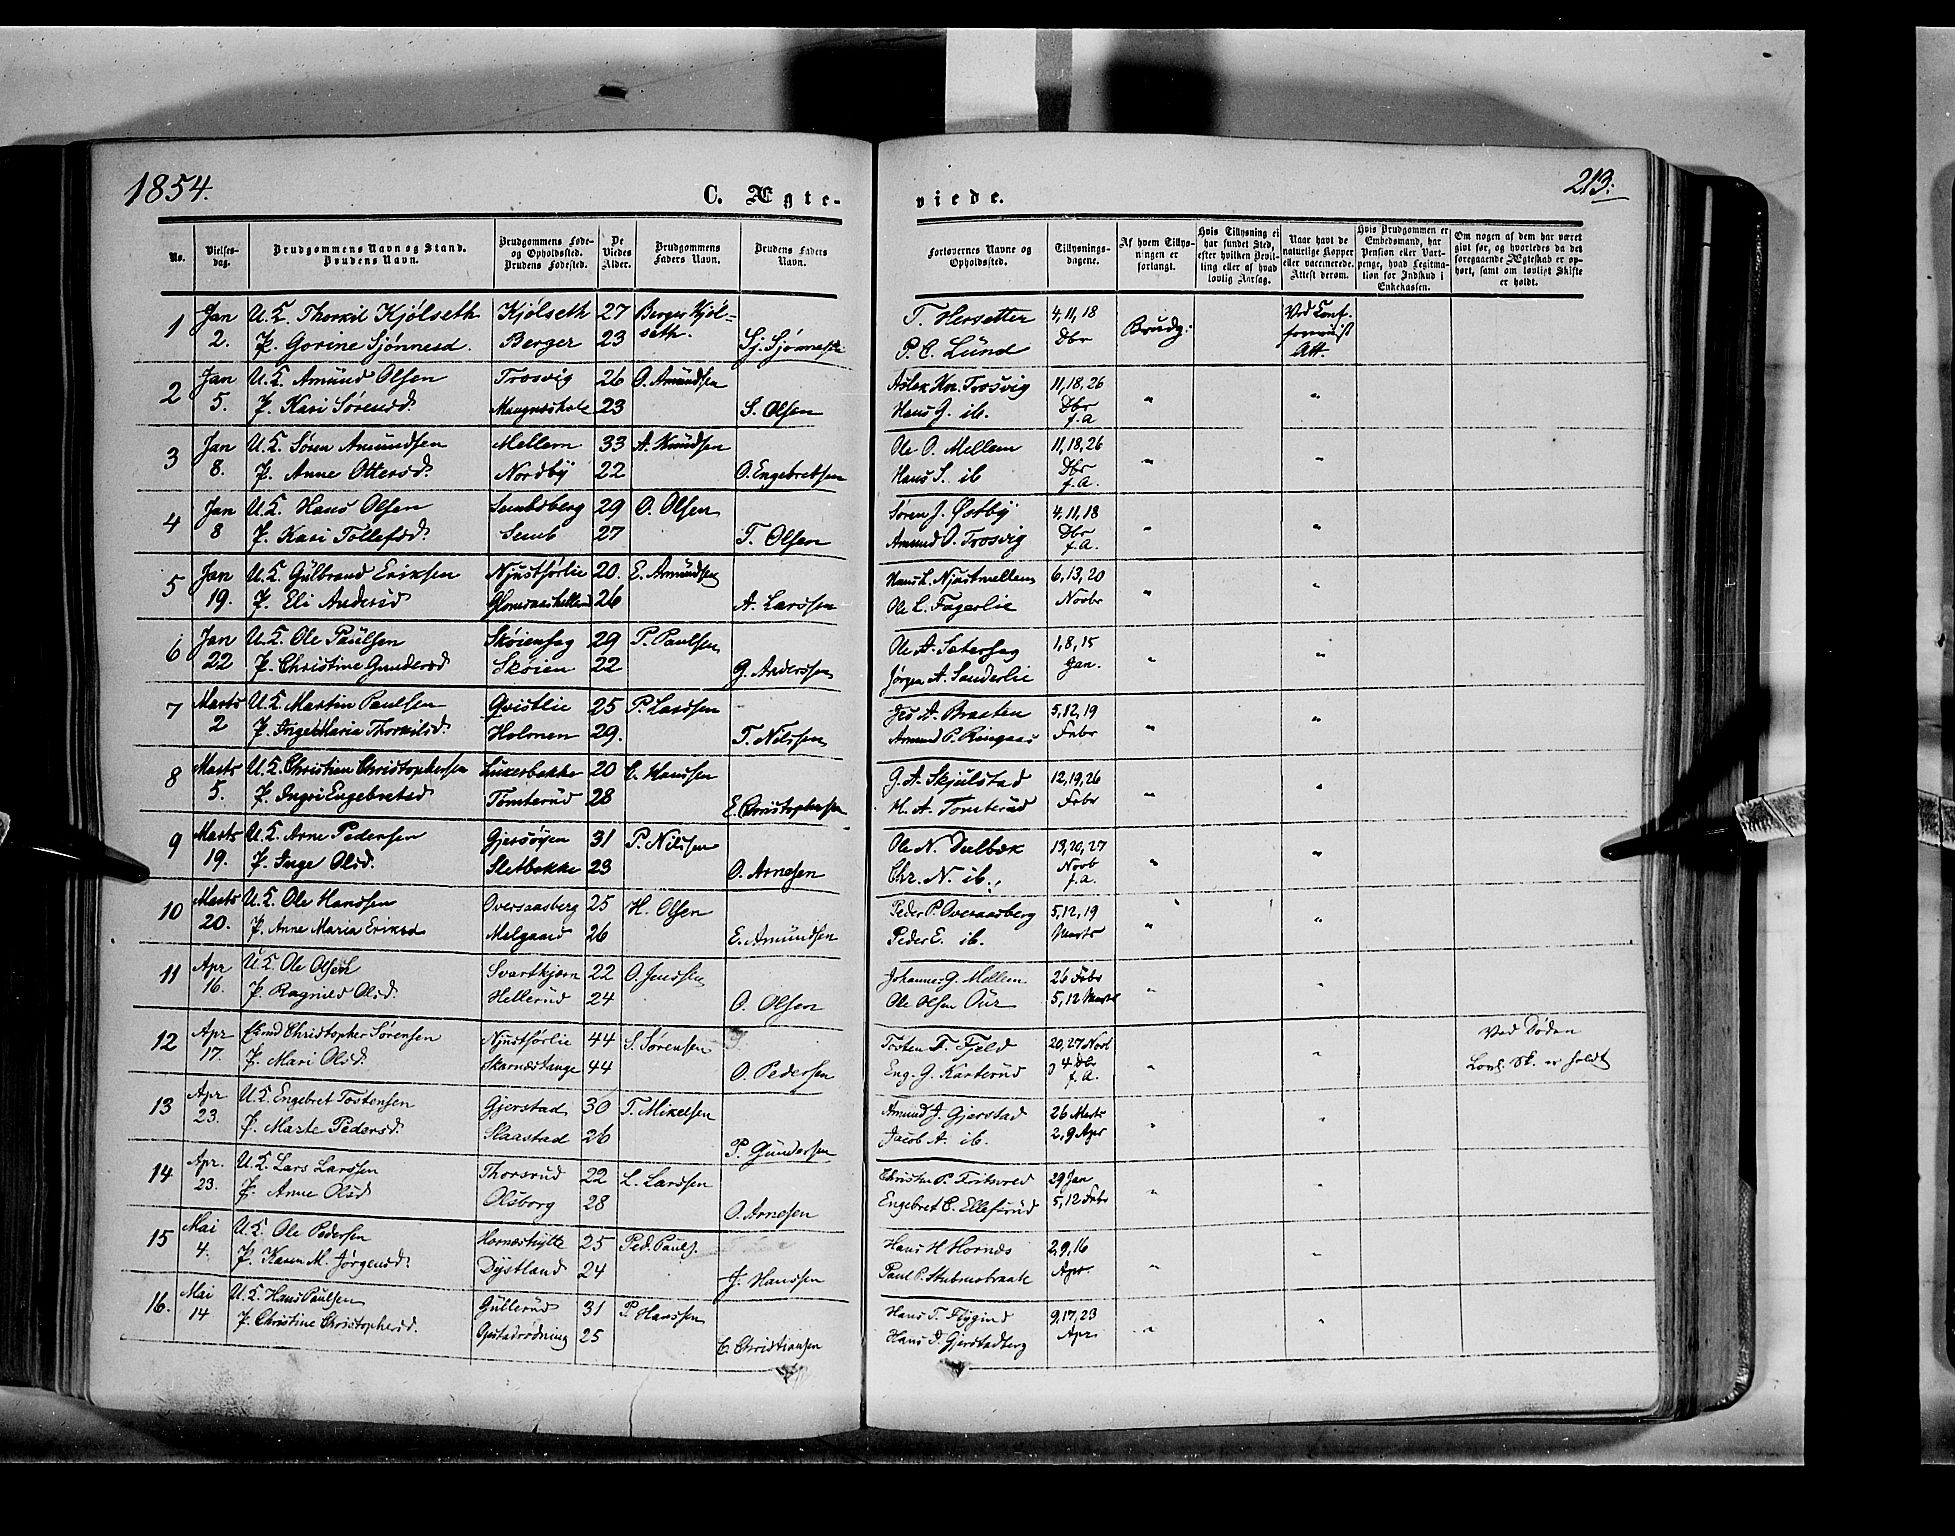 1854.
C. Ægte-
viede.
213.
No.
Vielses-
dag.
Brudgommens Navn og Stand.
Brudens Navn.
Brudgommens Føde-
og Opholdssted.
Brudens Fødested.
De
Viedes
Alder.
Brudgommens
Faders Navn.
Brudens Faders
Navn.
Forlovernes Navne og
Opholdssted.
Tillysnings-
dagene.
Af hvem Tillys-
ningen er
forlangt.
Hvis Tillysning ei
har fundet Sted,
efter hvilken Bevil-
ling eller af hvad
lovlig Aarsag.
Naar havt de
naturlige Kopper
eller vaccinerede.
Attest derom.
Hvis Brudgommen er
Embedsmand, har
Pension eller Vart-
penge, hvad Legitima-
tion for Indskud i
Enkekassen.
Om nogen af dem har været
givt før, og hvorledes da det
foregaaende Ægteskab er op-
hørt, samt om lovligt Skifte
er holdt.
1 Jan U.K. Thorkil Kjølseth Kjølseth 27 Berger Kjøl= T. Hersetter 4, 11, 18 Brudg: Ved Conf.
2. P. Gorine Sjønnesd. Berger 23 seth. Sj. P. C. Lund Dbr Att.
2 Jan U.K. Amund Olsen Trosvig 26 O. Amundsen Aslak Kn. Trosvig 11, 18, 26 " "
5. P. Kari Sørensd. 23 S. Olsen Hans G. ib. Dbr f.A
3 Jan U.K. Søren Amundsen Mellem 33 A. Knudsen Ole O. Mellem 11, 18, 26 " "
8. P. Anne Ottersd. Nordby 22 O. Engebretsen Hans S. ib Dbr f.A.
4 Jan U.K. Hans Olsen Sembsberg 29 O. Olsen Søren J. Østby 4, 11, 18 " "
8 P. Kari Tollefsd. Semb 27 T. Olsen Amund O. Trosvig Dbr f.A.
5 Jan U.K. Gulbrand Eriksen Njustførlie 20. E. Amundsen Hans L. Njustmellem 6, 13, 20 " "
19. P. Eli Andersd 26 A. Larssen Ole L. Fagerlie Novbr
6 Jan U.K. Ole Paulsen Skøienhag 29 P. Paulsen Ole A. Sæterhag 1, 8, 15 " "
22 P. Christine Gundersd Skøien 22 G. Anderssen Jørgen A. Sanderlie Jan.
7 Marts U.K. Martin Paulsen Qvistlie 25 P. Larssen A. Braaten 5, 12, 19 " "
2 P. Inger Maria Thorkilsd. Holmen 29. T. Nilssen Amund P. Ringaas Febr
8 Marts U.K. Christian Christophersen 20 C. Hanssen G. A. Skjulstad 12, 19, 26 " "
5. P. Ingri Engebretsd Tomterud 28 E. Christophersen M. A. Tomterud Febr
9 Marts U.K. Arne Pedersen Gjersøyen 31 P. Nilssen Ole N. Dulbæk 13, 20, 27 " "
19. P. Inge Olsd. Sletbakke 23 O. Arnesen Chr. N. ib. Novb f.a.
10 Marts U.K. Ole Hanssen Oversaasberg 25 H. Olsen Peder P. Oversaasberg 5, 12, 19 " "
20. P. Anne Maria Eriksd Melgaard 26 E. Amundsen Peder E. ib. Marts
11 Apr U.K. Ole Olsen Svartkjern 22 O. Jenssen Johannes G. Mellem 26 Febr " "
16. P. Ragnild Olsd. Hellerud 24 O. Olsen Ole Olsen Aur 5, 12 Marts
12 Apr Christopher Sørensen Njustførlie 44 S. Sørensen Tosten T. Fjeld 20, 27 Novb " " Ved Døden
17. P. Mari Olsd. Skarnæstange 44 O. Pedersen Eng. G. Karterud 4 Dbr f.A. Lovl. Sk. er holdt
13 Apr U.K. Engebret Tostensen Gjerstad 30 T. Mikelsen Amund J. Gjerstad 26 Marts " "
23. P. Marte Pedersd. Slaastad 26 P. Gundersen Jacob A. ib. 2, 9 Apr
14 Apr. U.K. Lars Larssen Thorsrud 22 L. Larssen Christen P. 29 Jan " "
23. P. Anne Olsd Olsborg 28 O. Arnesen Engebret C. Ellefsrud 5, 12 Febr
15 Mai U.K. Ole Pedersen Hornæshytte 25 Ped. Pauls. Hans H Hornæs 2, 9, 16 " "
4. P. Karen M. Jørgensd. Dystland 24 J. Hanssen Paul P. Stubmobraate Apr.
16. Mai U.K. Hans Paulsen Gullerud 31 P. Hanssen Hans T. 9, 17, 23 " "
14 P. Christine Christophersd. 25 C. Christiansen Hans P. Gjerstadberg Apr.